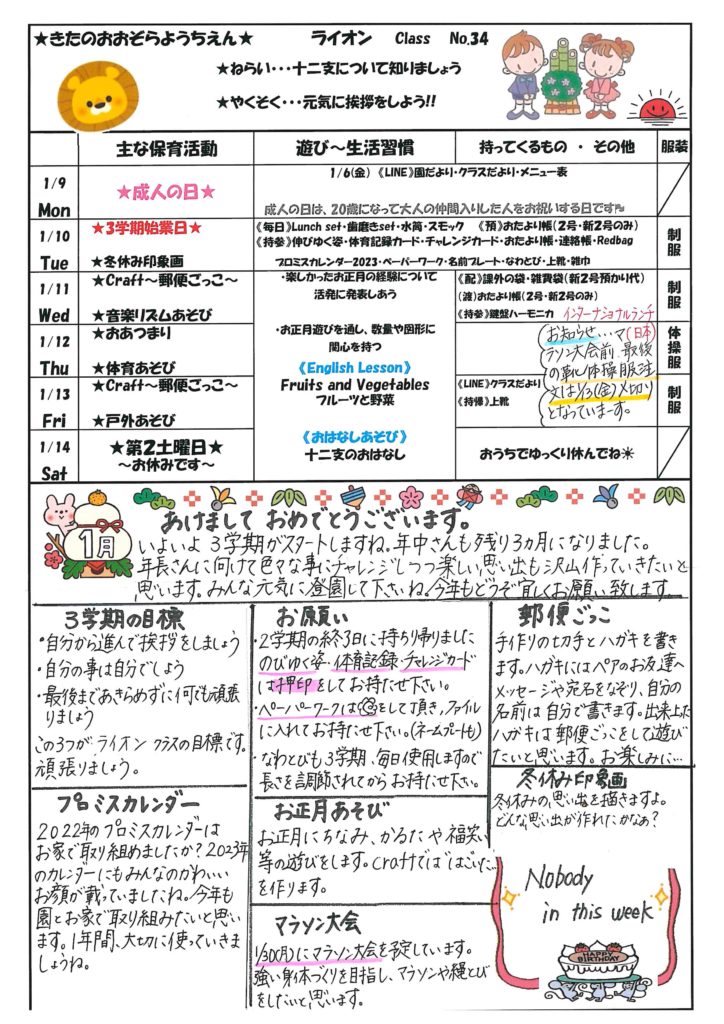 ★きたのおおぞらようちえん★ ライオン Class No.34
★ねらい・・・十二支について知りましょう
★やくそく・・・元気に挨拶をしよう!!
主な保育活動 遊び～生活習慣 持ってくるもの ・ その他 服装
1/9 Mon
★成人の日★
1/6(金) 《LINE》園だより・クラスだより・メニュー表
成人の日は、20歳になって大人の仲間入りした人をお祝いする日です
1/10 Tue
★3学期始業日★
★冬休み印象画
《毎日》Lunch set・歯磨きset・水筒・スモック 《預》おたより帳(2号・新2号のみ)
《持参》伸びゆく姿・体育記録カード・チャレンジカード・おたより帳・連絡帳・Redbag
プロミスカレンダー2023・ペーパーワーク・名前プレート・なわとび・上靴・雑巾
制服
1/11 Wed
★Craft～郵便ごっこ～
★音楽リズムあそび
・楽しかったお正月の経験について
活発に発表しあう
《配》課外の袋・雑貨袋(新2号預かり代)
(渡)おたより帳(2号・新2号のみ)
《持参》鍵盤ハーモニカ インターナショナルランチ
(日本)
制服
1/12 Thu
★おあつまり
★体育あそび
・お正月遊びを通し、数量や図形に
関心を持つ
《English Lesson》
お知らせ・・・マ
ラソン大会前、最後
の靴・体操服注
文は1/13(金)〆切り
となっていまーす。
体操服
1/13 Fri
★Craft～郵便ごっこ～
★戸外あそび
Fruits and Vegetables
フルーツと野菜
《LINE》クラスだより
《持帰》上靴
制服
1/14 Sat
★第2土曜日★
～お休みです～
《おはなしあそび》
十二支のおはなし
おうちでゆっくり休んでね☀
1月
あけまして おめでとうございます。
いよいよ3学期がスタートしますね。年中さんも残り3ヵ月になりました。
年長さんに向けて色々な事にチャレンジしつつ楽しい思い出も沢山作っていきたいと
思います。みんな元気に登園して下さいね。今年もどうぞ宜しくお願い致します
3学期の目標
・自分から進んで挨拶をしましょう
・自分の事は自分でしよう
・最後まであきらめずに何でも頑張
りましょう
この3つがライオンクラスの目標です。
頑張りましょう。
プロミスカレンダー
2022年のプロミスカレンダーは
お家で取り組めましたか？2023年
のカレンダーにもみんなのかわいい
お顔が載っていましたね。今年も
園とお家で取り組みたいと思い
ます。1年間、大切に使っていきま
しょうね。
お願い
・2学期の終了日に持ち帰りました
のびゆく姿・体育記録・チャレンジカード
は押印をしてお持たせ下さい。
・ペーパーワークは をして頂き、ファイル
に入れてお持たせ下さい。(ネームプレートも)
・なわとびも3学期、毎日使用しますので
長さを調節されてからお持たせ下さい。
お正月あそび
お正月にちなみ、かるたや福笑い
等の遊びをします。craftでははごいた
を作ります。
マラソン大会
1/30(月)にマラソン大会を予定しています。
強い身体づくりを目指し、マラソンや縄とび
をしたいと思います。
郵便ごっこ
手作りの切手とハガキを書き
ます。ハガキにはペアのお友達へ
メッセージや宛名をなぞり、自分の
名前は自分で書きます。出来上った
ハガキは郵便ごっこをして遊び
たいと思います。お楽しみに…
冬休み印象画
冬休みの、思い出を描きますよ。
どんな思い出が作れたかなぁ？
Nobody
in this week
HAPPY
BIRTHDAY